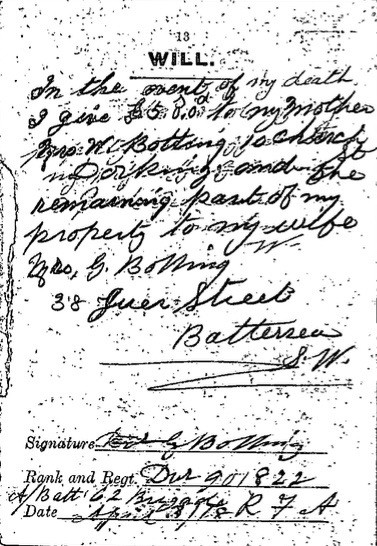 13
WILL.
In the event of my death
I give £5.0.0d to my Mother
Mrs W Botting 10 Church
Dorking and the
remaining part of my
property to my wife
W
Mrs, G. Botting
38 Juer Street
Battersea
S.W.
Signature G Botting
Rank and Regt. Dvr 901822
A/Batt 62 Brigade R F A
Date April 3/18